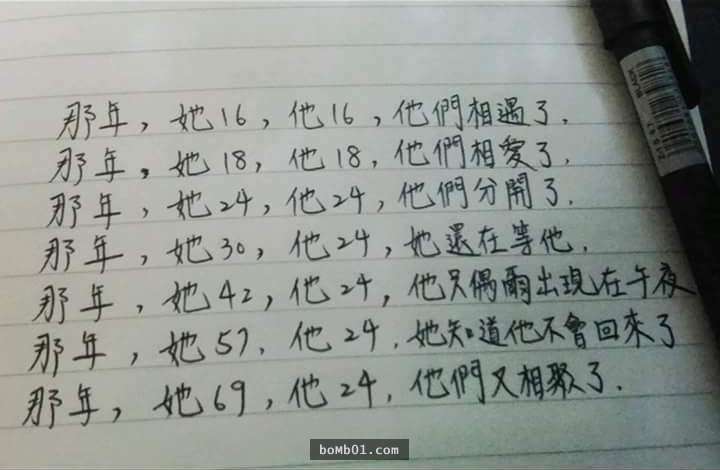 那年，她16，他16，他們相遇了.
那年，她18，他18，他們相愛了.
那年，她24，他24，他們分開了.
那年，她30，他24，她還在等他.
那年，她42，他24，他只偶爾出現在午夜
那年，她57，他24，她知道他不會回來了
那年，她69，他24，他們又相聚了.
boMb01.com